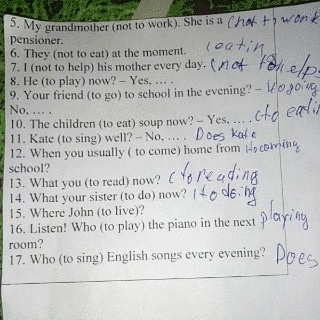 5. My grandmother (not to work). She is a (not to work
pensioner.
6. They (not to eat) at the moment. (eatin
7. I (not to help) his mother every day. (not to help
8. He (to play) now? – Yes, … .
9. Your friend (to go) to school in the evening? – going
No, … .
10. The children (to eat) soup now? – Yes, … . (to eati
11. Kate (to sing) well? – No, … . Does Kate
12. When you usually ( to come) home from
school?
13. What you (to read) now? (to reading
14. What your sister (to do) now? to doing
15. Where John (to live)?
16. Listen! Who (to play) the piano in the next playing
room?
17. Who (to sing) English songs every evening? Does